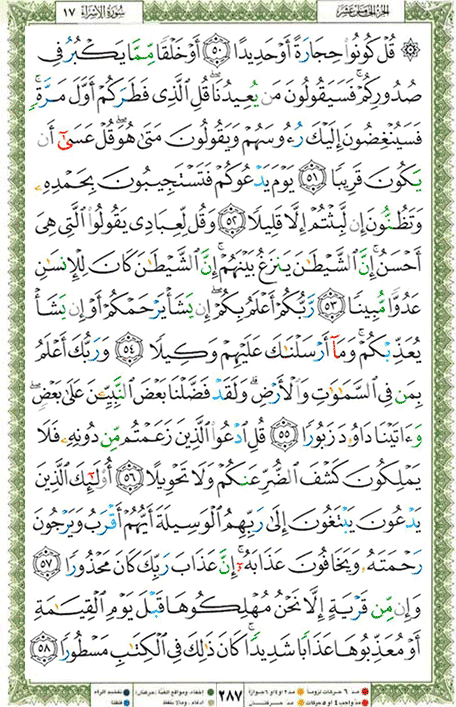 الجزء الخامس عشر
سورة الإسراء ١٧
۞ قُلْ كُونُوا۟ حِجَارَةً أَوْ حَدِيدًا ٥٠ أَوْ خَلْقًا مِّمَّا يَكْبُرُ فِى
صُدُورِكُمْ ۚ فَسَيَقُولُونَ مَن يُعِيدُنَا ۖ قُلِ ٱلَّذِى فَطَرَكُمْ أَوَّلَ مَرَّةٍ ۚ
فَسَيُنْغِضُونَ إِلَيْكَ رُءُوسَهُمْ وَيَقُولُونَ مَتَىٰ هُوَ ۖ قُلْ عَسَىٰٓ أَن
يَكُونَ قَرِيبًا ٥١ يَوْمَ يَدْعُوكُمْ فَتَسْتَجِيبُونَ بِحَمْدِهِۦ
وَتَظُنُّونَ إِن لَّبِثْتُمْ إِلَّا قَلِيلًا ٥٢ وَقُل لِّعِبَادِى يَقُولُوا۟ ٱلَّتِى هِىَ
أَحْسَنُ ۚ إِنَّ ٱلشَّيْطَٰنَ يَنزَغُ بَيْنَهُمْ ۚ إِنَّ ٱلشَّيْطَٰنَ كَانَ لِلْإِنسَٰنِ
عَدُوًّا مُّبِينًا ٥٣ رَّبُّكُمْ أَعْلَمُ بِكُمْ ۖ إِن يَشَأْ يَرْحَمْكُمْ أَوْ إِن يَشَأْ
يُعَذِّبْكُمْ ۚ وَمَآ أَرْسَلْنَٰكَ عَلَيْهِمْ وَكِيلًا ٥٤ وَرَبُّكَ أَعْلَمُ
بِمَن فِى ٱلسَّمَٰوَٰتِ وَٱلْأَرْضِ ۗ وَلَقَدْ فَضَّلْنَا بَعْضَ ٱلنَّبِيِّۦنَ عَلَىٰ بَعْضٍ ۖ
وَءَاتَيْنَا دَاوُۥدَ زَبُورًا ٥٥ قُلِ ٱدْعُوا۟ ٱلَّذِينَ زَعَمْتُم مِّن دُونِهِۦ فَلَا
يَمْلِكُونَ كَشْفَ ٱلضُّرِّ عَنكُمْ وَلَا تَحْوِيلًا ٥٦ أُو۟لَٰٓئِكَ ٱلَّذِينَ
يَدْعُونَ يَبْتَغُونَ إِلَىٰ رَبِّهِمُ ٱلْوَسِيلَةَ أَيُّهُمْ أَقْرَبُ وَيَرْجُونَ
رَحْمَتَهُۥ وَيَخَافُونَ عَذَابَهُۥٓ ۚ إِنَّ عَذَابَ رَبِّكَ كَانَ مَحْذُورًا ٥٧
وَإِن مِّن قَرْيَةٍ إِلَّا نَحْنُ مُهْلِكُوهَا قَبْلَ يَوْمِ ٱلْقِيَٰمَةِ
أَوْ مُعَذِّبُوهَا عَذَابًا شَدِيدًا ۚ كَانَ ذَٰلِكَ فِى ٱلْكِتَٰبِ مَسْطُورًا ٥٨
مد ٦ حركات لزوما مد ٢ أو ٤ أو ٦ جوازا
مد واجب ٤ أو ٥ حركات مد حركتان
٢٨٧
إخفاء، ومواقع الغنة (حركتان) تفخيم الراء
إدغام، وما لا يلفظ قلقلة